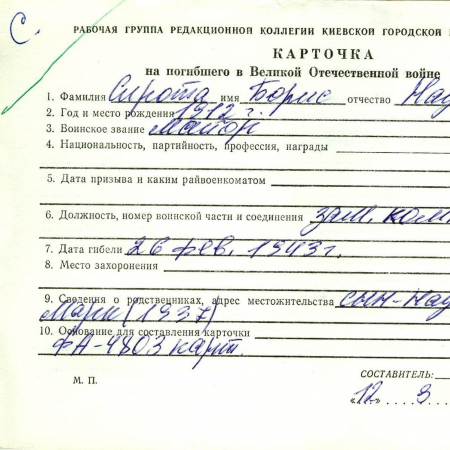 С.
РАБОЧАЯ ГРУППА РЕДАКЦИОННОЙ КОЛЛЕГИИ КИЕВСКОЙ ГОРОДСКОЙ
КАРТОЧКА
на погибшего в Великой Отечественной войне
1. Фамилия Сирота имя Борис отчество Нау
2. Год и место рождения 1912 г.
3. Воинское звание майор
4. Национальность, партийность, профессия, награды
5. Дата призыва и каким райвоенкоматом
6. Должность, номер воинской части и соединения зам. ком.
7. Дата гибели 26 фев. 1943 г.
8. Место захоронения
9. Сведения о родственниках, адрес местожительства сын - Нау
Марк (1937)
10. Основание для составления карточки
ФА-4803 карт.
СОСТАВИТЕЛЬ:
М. П.
«12 3